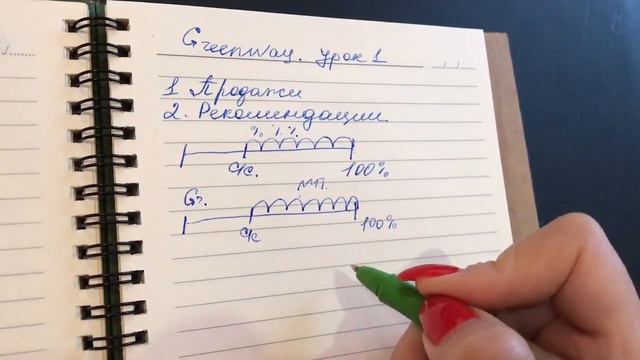 Greenway. Урок 1
1 Продажи
2. Рекомендации
% % %
с/с. 100%
МП.
Gr.
с/с 100%